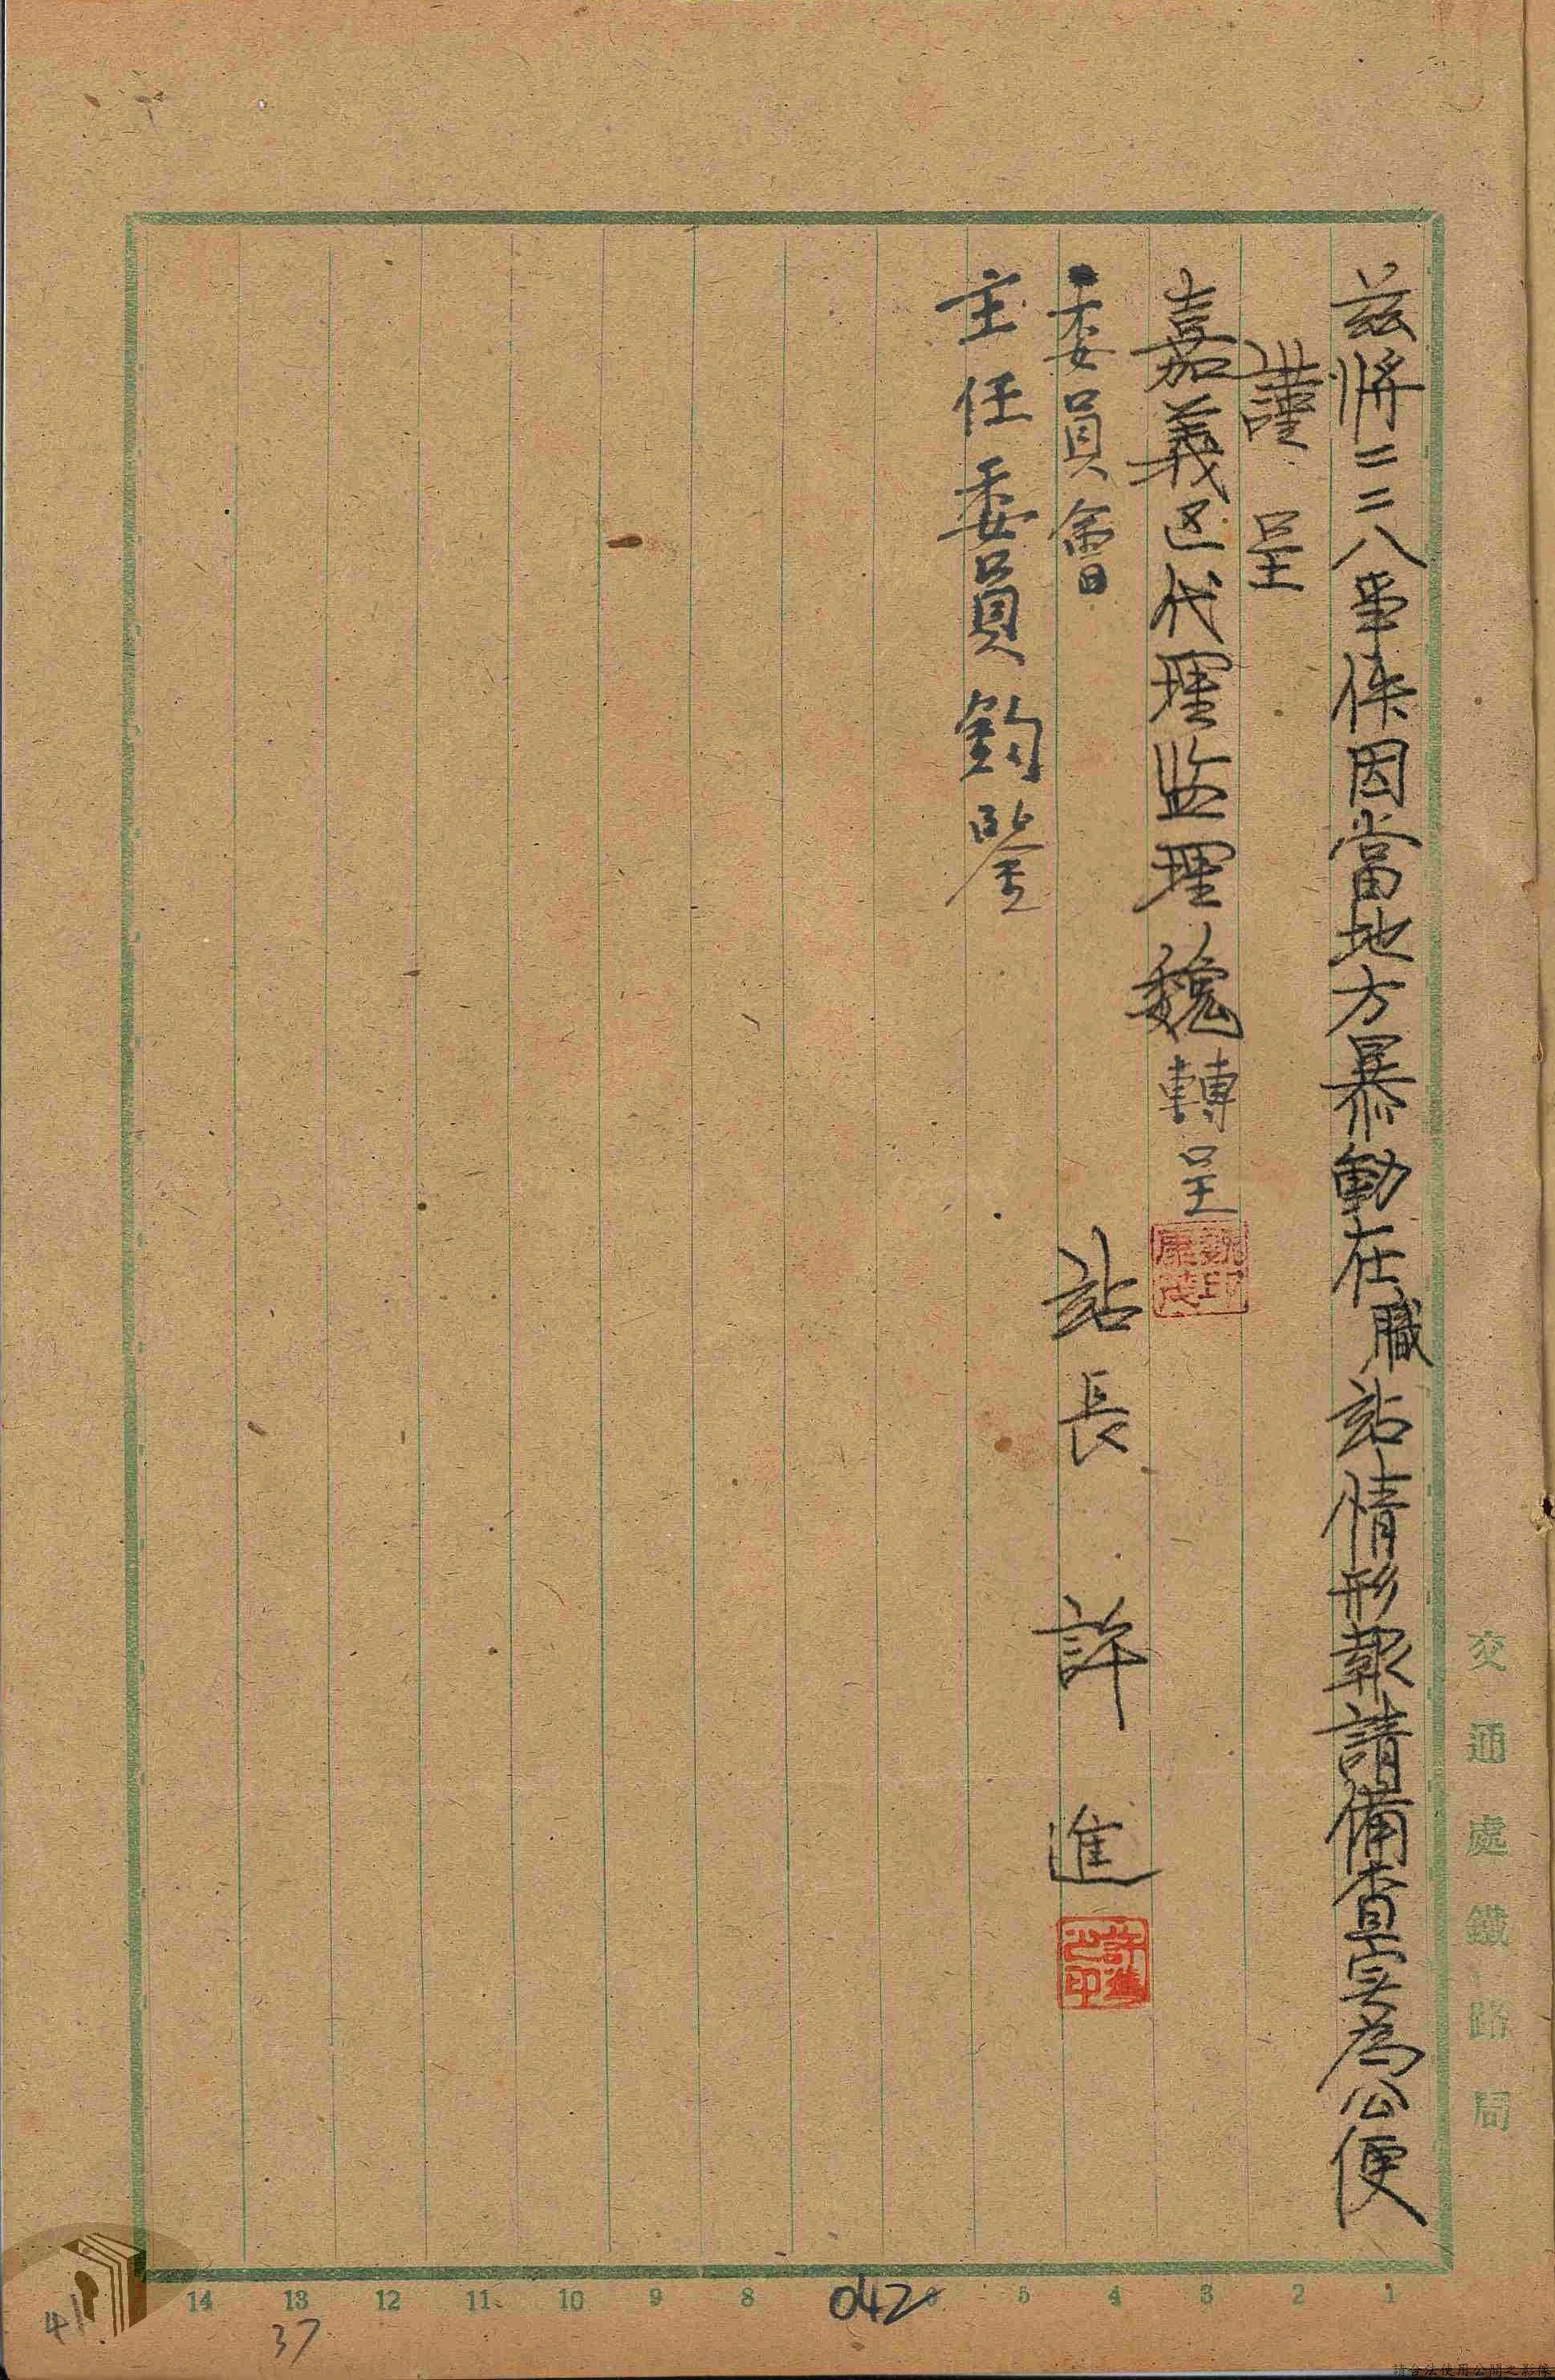 茲將二二八事件因當地方暴動在職站情形報請備查实為公便
謹呈
嘉義区代理监理魏轉呈
委員會
主任委員鈞鑒
站長 許進
魏印康
許進之印
交通處鐵路局
1 2 3 4 5 8 9 10 11 12 13 14
042
37
41
請合法使用公開之影像